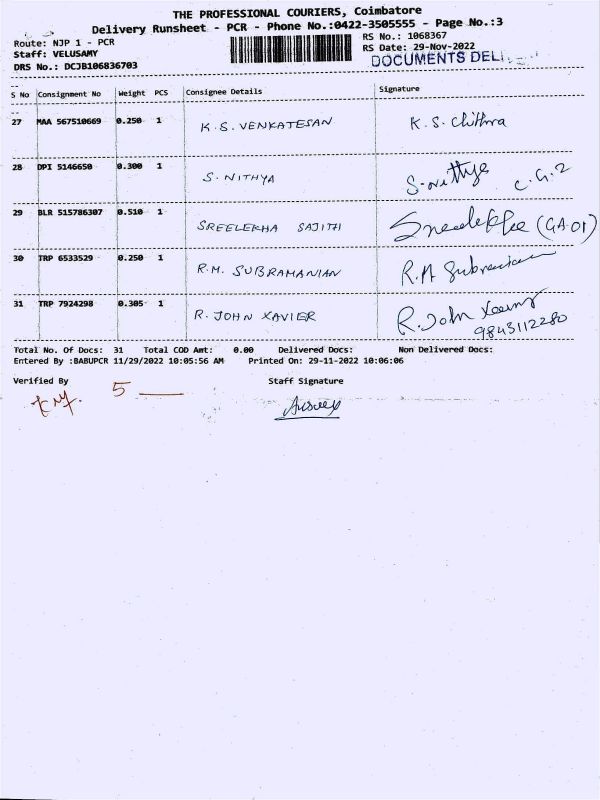 THE PROFESSIONAL COURIERS, Coimbatore
Delivery Runsheet - PCR - Phone No.:0422-3505555 - Page No.:3
Route: NJP 1 - PCR RS No.: 1068367
Staff: VELUSAMY RS Date: 29-Nov-2022
DRS No.: DCJB106836703 DOCUMENTS DELI
S No Consignment No Weight PCS Consignee Details Signature
27 MAA 567510669 0.250 1 K.S. VENKATESAN K.S. Chithra
28 DPI 5146650 0.300 1 S. NITHYA S. Nithya C.G.2
29 BLR 515786307 0.510 1 SREELEKHA SAJITH Sreelekha (GA01)
30 TRP 6533529 0.250 1 R.M. SUBRAMANIAN R.M Subramanian
31 TRP 7924298 0.305 1 R. JOHN XAVIER R. John Xavier
9843112280
Total No. Of Docs: 31 Total COD Amt: 0.00 Delivered Docs: Non Delivered Docs:
Entered By :BABUPCR 11/29/2022 10:05:56 AM Printed On: 29-11-2022 10:06:06
Verified By Staff Signature
5